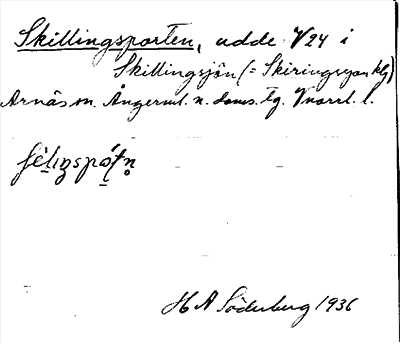 Skillingsporten, udde V24 i
Skillingsjön (= Skiringssjön klg)
Arnäs sn. Ångerml. n. doms. tg. Vnorrl. l.
H A Söderberg 1936